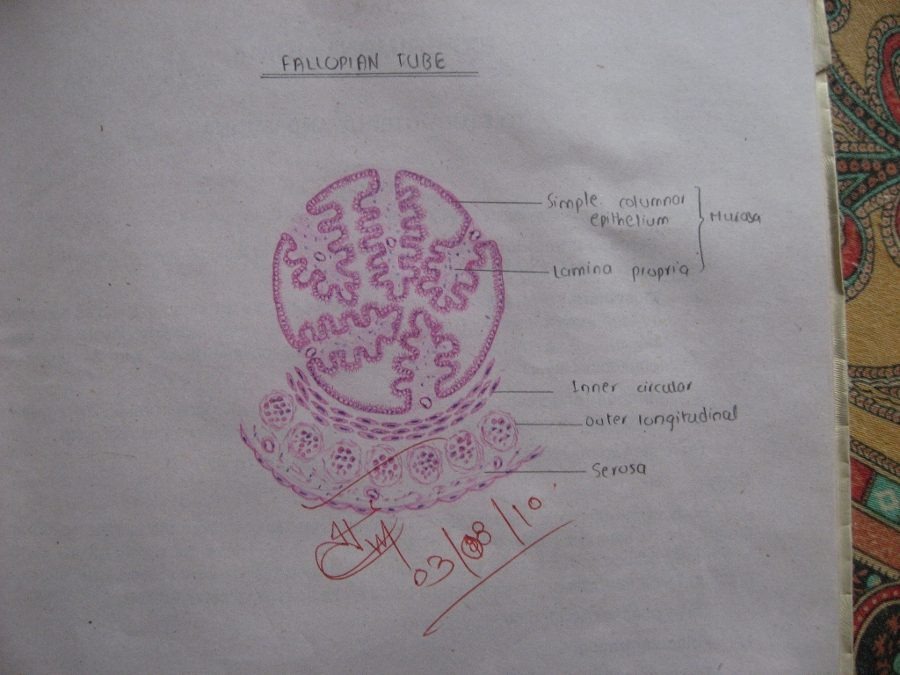 FALLOPIAN TUBE
Simple columnar
epithelium
Mucosa
Lamina propria
Inner circular
outer longitudinal
Serosa
03/08/10